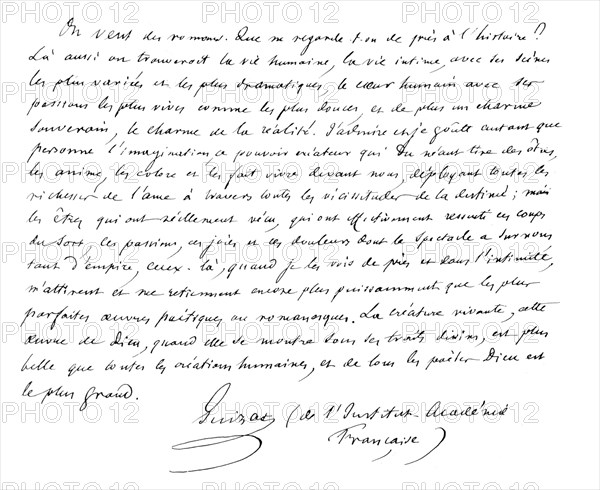 On veut des romans. Que ne regarde-t-on de près à l'histoire?
Là aussi on trouverait la vie humaine, la vie intime, avec ses scènes
les plus variées et les plus dramatiques, le cœur humain avec ses
passions les plus vives comme les plus douces, et de plus un charme
souverain, le charme de la réalité. J'admire et je goûte autant que
personne l'imagination, ce pouvoir créateur qui du néant tire des êtres,
les anime, les colore et les fait vivre devant nous, déployant toutes les
richesses de l'âme à travers toutes les vicissitudes de la destinée; mais
les êtres qui ont réellement vécu, qui ont effectivement ressenti ces coups
du sort, ces passions, ces joies et ces douleurs dont le spectacle a sur nous
tant d'empire, ceux-là, quand je les vois de près et dans l'intimité,
m'attirent et me retiennent encore plus puissamment que les plus
parfaites œuvres poétiques ou romanesques. La créature vivante, cette
œuvre de Dieu, quand elle se montre sous ses traits divins, est plus
belle que toutes les créations humaines, et de tous les poètes Dieu est
le plus grand.
Guizot (de l'Institut-Académie
Française)
PHOTO 12